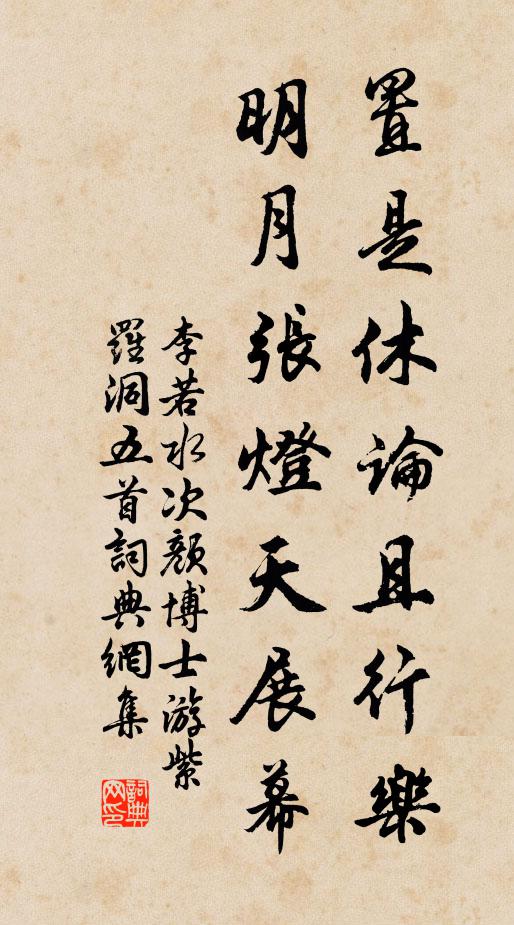 置是休論且行樂
明月張燈天展幕
李若水次顏博士游紫
羅洞五首詞典網集
詞典网印